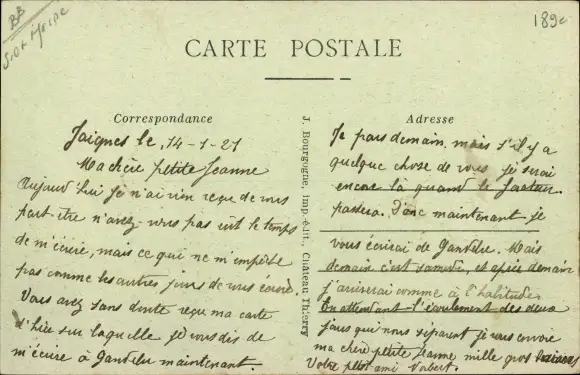 BB
189c
CARTE POSTALE
Correspondance
Jaignes le, 14-1-21
Ma chère petite Jeanne
Aujourd'hui je n'ai rien reçu de vous
peut-être n'avez-vous pas eut le temps
de m'écrire, mais ce qui ne m'empêche
pas comme les autres jours de vous écrire.
Vous avez sans doute reçu ma carte
d'hier sur laquelle je vous dis de
m'écrire à Gandelu maintenant.
J. Bourgogne, imp.-édit., Château-Thierry
Adresse
Je pars demain, mais s'il y a
quelque chose de vous je serai
encore là quand le facteur
passera. Donc maintenant je
vous écrirai de Gandelu. Mais
demain c'est samedi, et après demain
j'arriverai comme à l'habitude.
En attendant l'écoulement des deux
jours qui nous séparent je vous envoie
ma chère petite Jeanne mille gros baisers
Votre petit ami